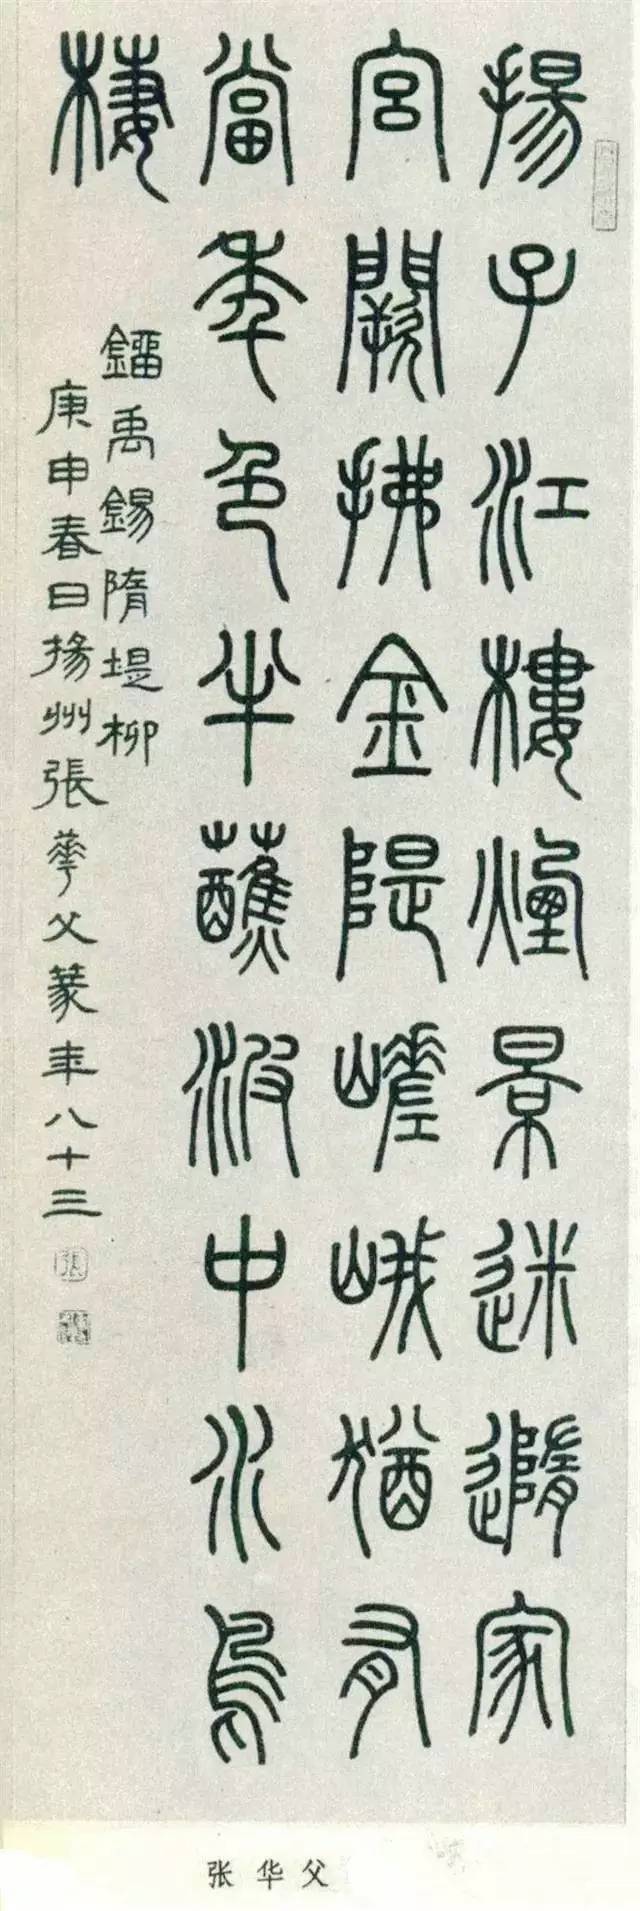 揚子江樓煙景迷隨家
宮闕拂金隄嵯峨猶有
當年色半蘸波中水鳥
棲
鎦禹錫隋堤柳
庚申春日揚州張華父篆年八十三
张华父